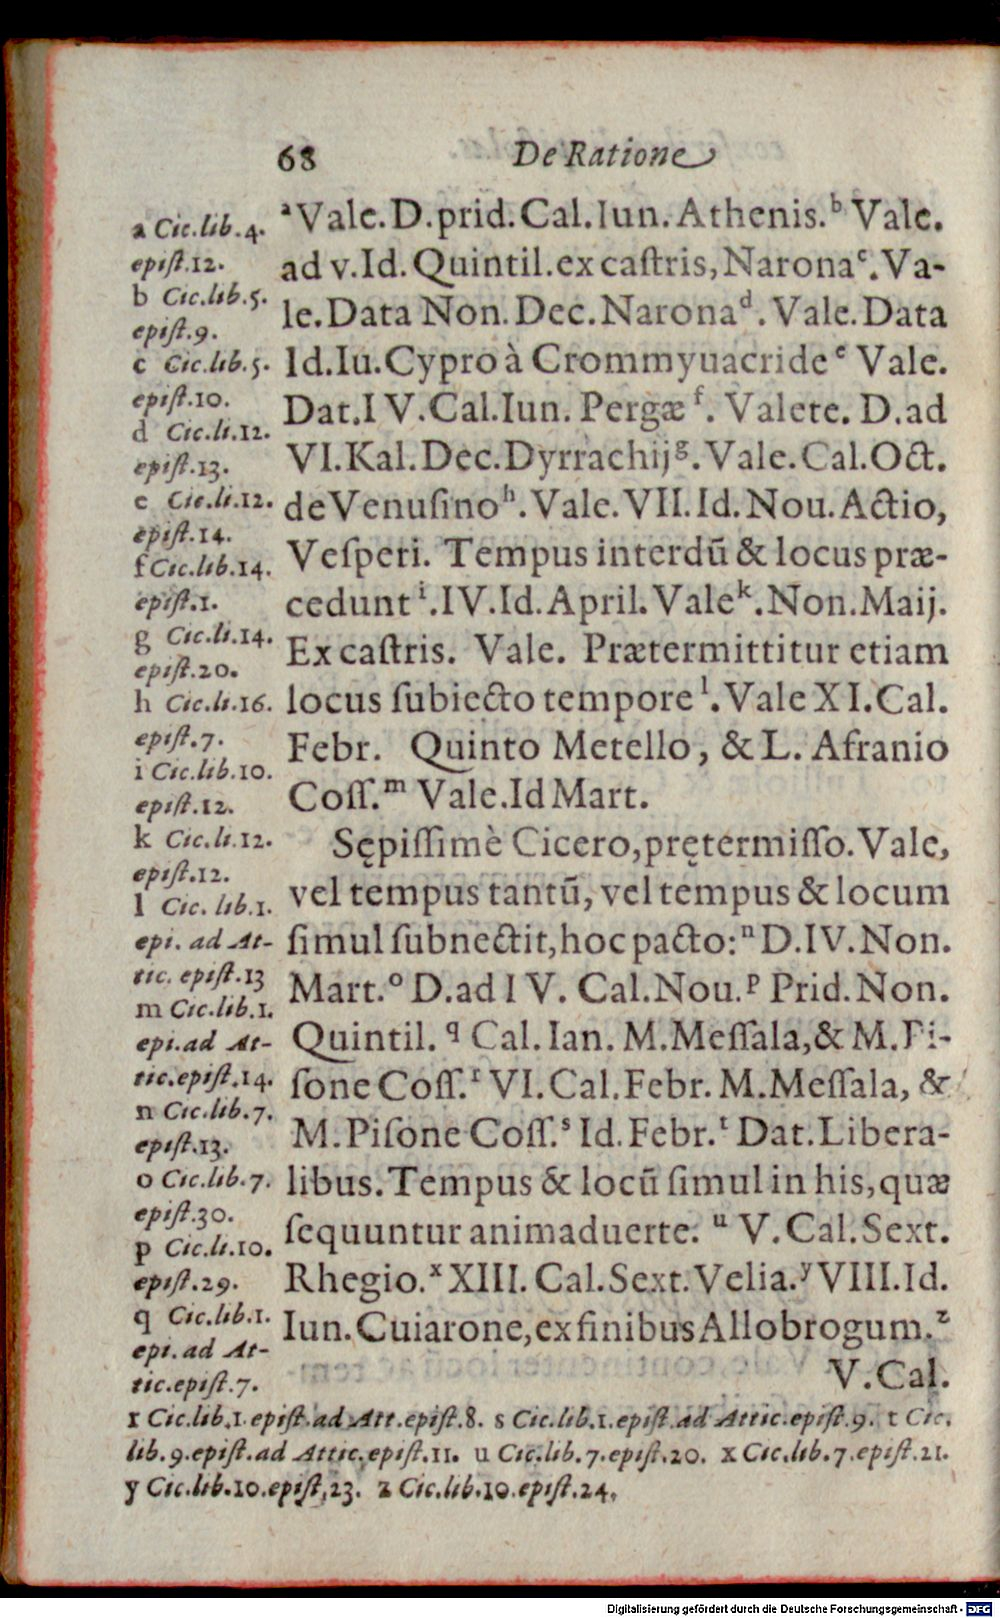 68 De Ratione
ᵃVale. D. prid. Cal. Iun. Athenis.ᵇ Vale.
ad v. Id. Quintil. ex castris, Naronaᶜ. Va-
le. Data Non. Dec. Naronaᵈ. Vale. Data
Id. Iu. Cypro à Crommyuacrideᵉ Vale.
Dat. IV. Cal. Iun. Pergæᶠ. Valete. D. ad
VI. Kal. Dec. Dyrrachijᵍ. Vale. Cal. Oct.
de Venusinoʰ. Vale. VII. Id. Nou. Actio,
Vesperi. Tempus interdũ & locus præ-
ceduntⁱ. IV. Id. April. Valeᵏ. Non. Maij.
Ex castris. Vale. Prætermittitur etiam
locus subiecto temporeˡ. Vale XI. Cal.
Febr. Quinto Metello, & L. Afranio
Coss.ᵐ Vale. Id Mart.
Sępissimè Cicero, prętermisso. Vale,
vel tempus tantũ, vel tempus & locum
simul subnectit, hoc pacto: ⁿ D. IV. Non.
Mart.ᵒ D. ad IV. Cal. Nou.ᵖ Prid. Non.
Quintil. q Cal. Ian. M. Messala, & M. Pi-
sone Coss.ʳ VI. Cal. Febr. M. Messala, &
M. Pisone Coss.ˢ Id. Febr.ᵗ Dat. Libera-
libus. Tempus & locũ simul in his, quæ
sequuntur animaduerte. ᵘ V. Cal. Sext.
Rhegio.ˣ XIII. Cal. Sext. Velia.ʸ VIII. Id.
Iun. Cuiarone, ex finibus Allobrogum.ᶻ
V. Cal.
a Cic. lib. 4.
epist. 12.
b Cic. lib. 5.
epist. 9.
c Cic. lib. 5.
epist. 10.
d Cic. li. 12.
epist. 13.
e Cic. li. 12.
epist. 14.
f Cic. lib. 14.
epist. 1.
g Cic. li. 14.
epist. 20.
h Cic. li. 16.
epist. 7.
i Cic. lib. 10.
epist. 12.
k Cic. li. 12.
epist. 12.
l Cic. lib. 1.
epi. ad At-
tic. epist. 13
m Cic. lib. 1.
epi. ad At-
tic. epist. 14.
n Cic. lib. 7.
epist. 13.
o Cic. lib. 7.
epist. 30.
p Cic. li. 10.
epist. 29.
q Cic. lib. 1.
epi. ad At-
tic. epist. 7.
r Cic. lib. 1. epist. ad Att. epist. 8. s Cic. lib. 1. epist. ad Attic. epist. 9. t Cic.
lib. 9. epist. ad Attic. epist. 11. u Cic. lib. 7. epist. 20. x Cic. lib. 7. epist. 21.
y Cic. lib. 10. epist. 23. z Cic. lib. 10. epist. 24.
Digitalisierung gefördert durch die Deutsche Forschungsgemeinschaft - DFG